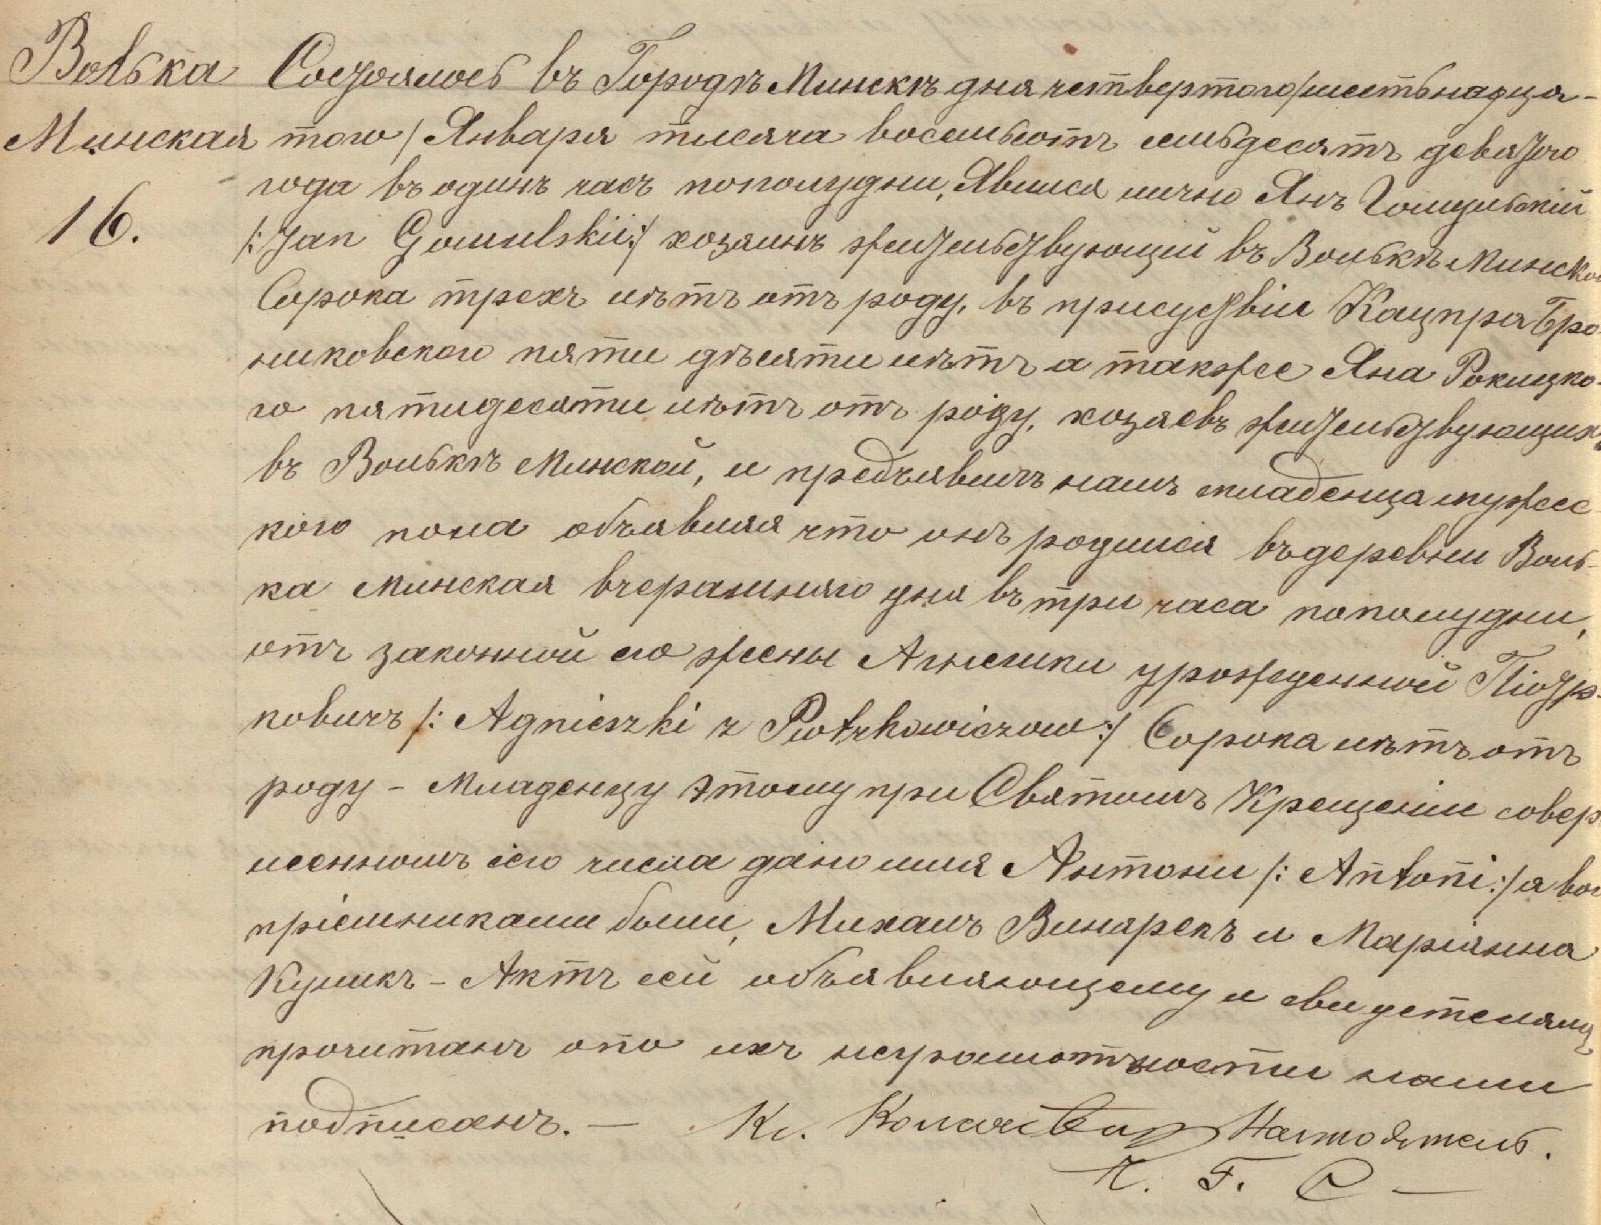 Волька
Минская
16.
Состоялось въ Городѣ Минскѣ дня четвертого /шестьнадца-
того/ Января тысяча восемьсотъ семьдесятъ девятого
года въ одинъ часъ пополудни, Явился лично Янъ Гомульскій
/:Jan Gomulskii:/ хозяинъ жительствующій въ Волькѣ Минской
Сорока трехъ лѣтъ отъ роду, въ присуствіи Кацпра Бро-
никовского пяти дѣсяти лѣтъ а также Яна Рокицко-
го пятидесяти лѣтъ отъ роду, хозяевъ жительствующихъ
въ Волькѣ Минской, и предъявилъ намъ младенца мужес-
кого пола объявляя что онъ родился въ деревни Воль-
ка Минская вчерашняго дня въ три часа пополудни,
отъ законной его жены Агнешки урожденной Піотр-
ковичъ /: Agnieszki z Piotrkowiczow:/ Сорока лѣтъ отъ
роду - Младенцу этому при Святомъ Крещеніи совер
шенномъ сего числа дано имя Антони /: Antoni:/ а вос
пріемниками были, Михалъ Винярекъ и Маріянна
Куликъ - Актъ сей объявляющему и свидетелямъ
прочитанъ опо ихъ неграмотности нами
подписанъ. — Кс. Настоятель.
Ч. Г. С —